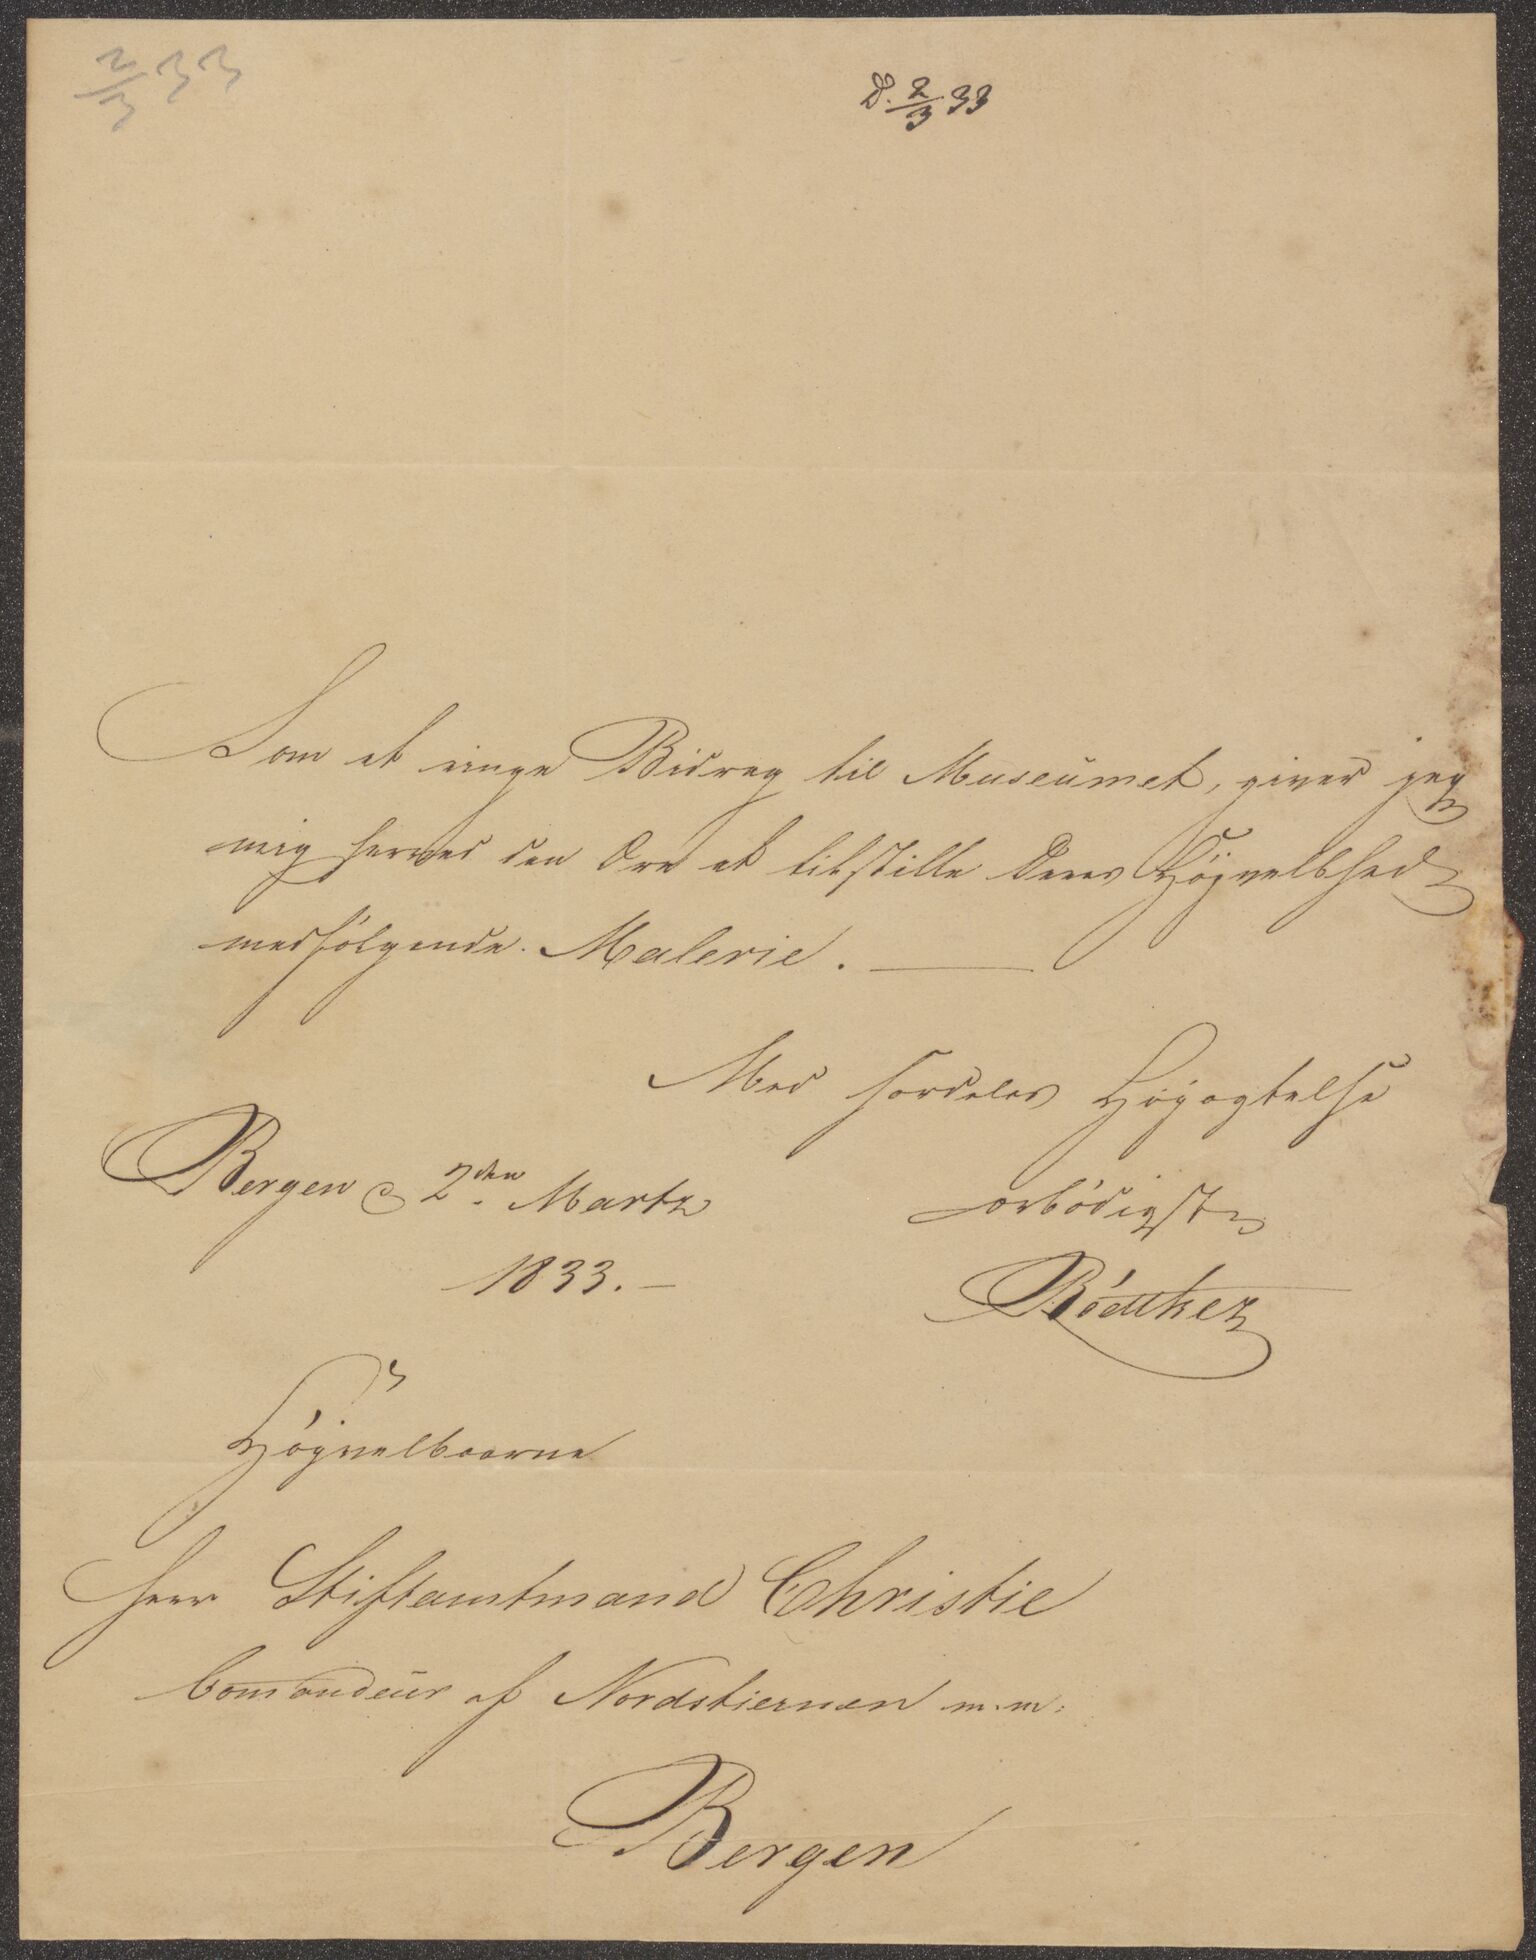 2/3 33
D. 2/3 33
Som et ringe Bidrag til Museümet, giver jeg
mig herved den Ære at tilstille Deres Höjvelbhed
medfölgende Malerie.
Med særdeles Höjagtelse
Bergen d 2den Martz
ærbödigst
1833.
Bödtker
Höjvelbaarne
Herr Stiftamtmand Christie
Comandeür af Nordstiernen m.m:
Bergen